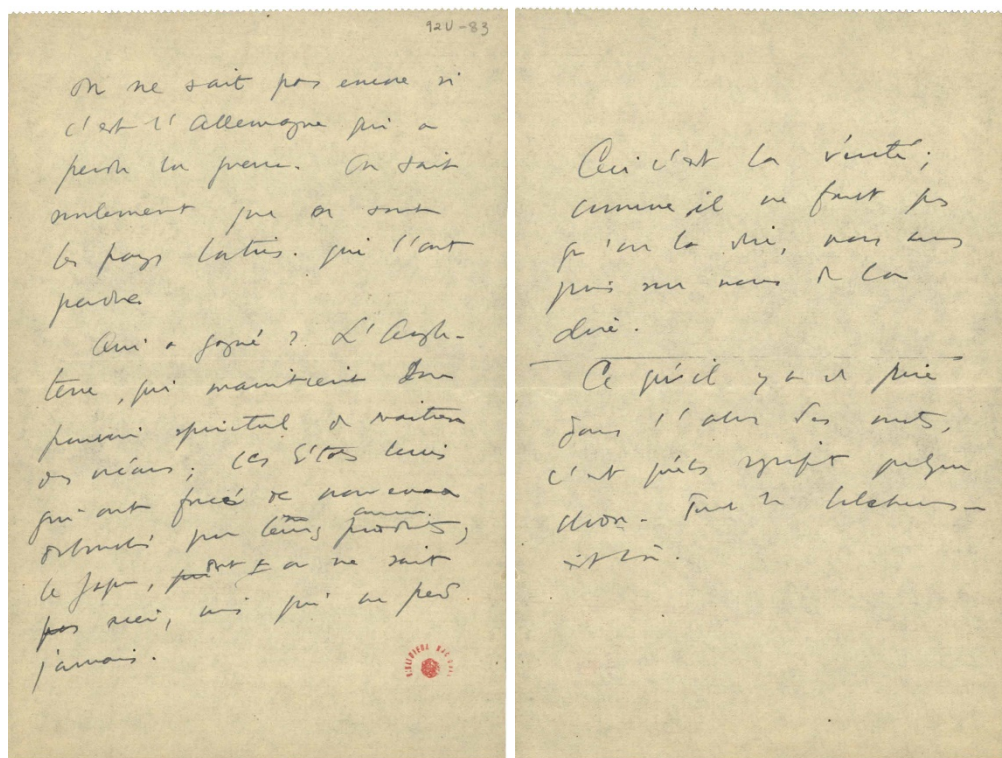 92U-83
On ne sait pas encore si
c'est l'Allemagne qui a
perdu la guerre. On sait
seulement que ce sont
les pays latins. qui l'ont
perdue.
Qui a gagné? L'Angle-
terre, qui maintient
pouvoir spirituel de
des océans; les États Unis
qui ont forcé de nouveaux
débouchés pour leurs produits,
le Japon, dont on ne sait
pas rien, mais qui ne perd
jamais.
BIBLIOTECA NACIONAL
Ceci c'est la vérité;
comme il ne faut pas
qu'on la dise, nous
de la
dire.
Ce qu'il y a de pire
dans l'abus des mots,
c'est qu'ils
chose. Toute la littérature
est là.